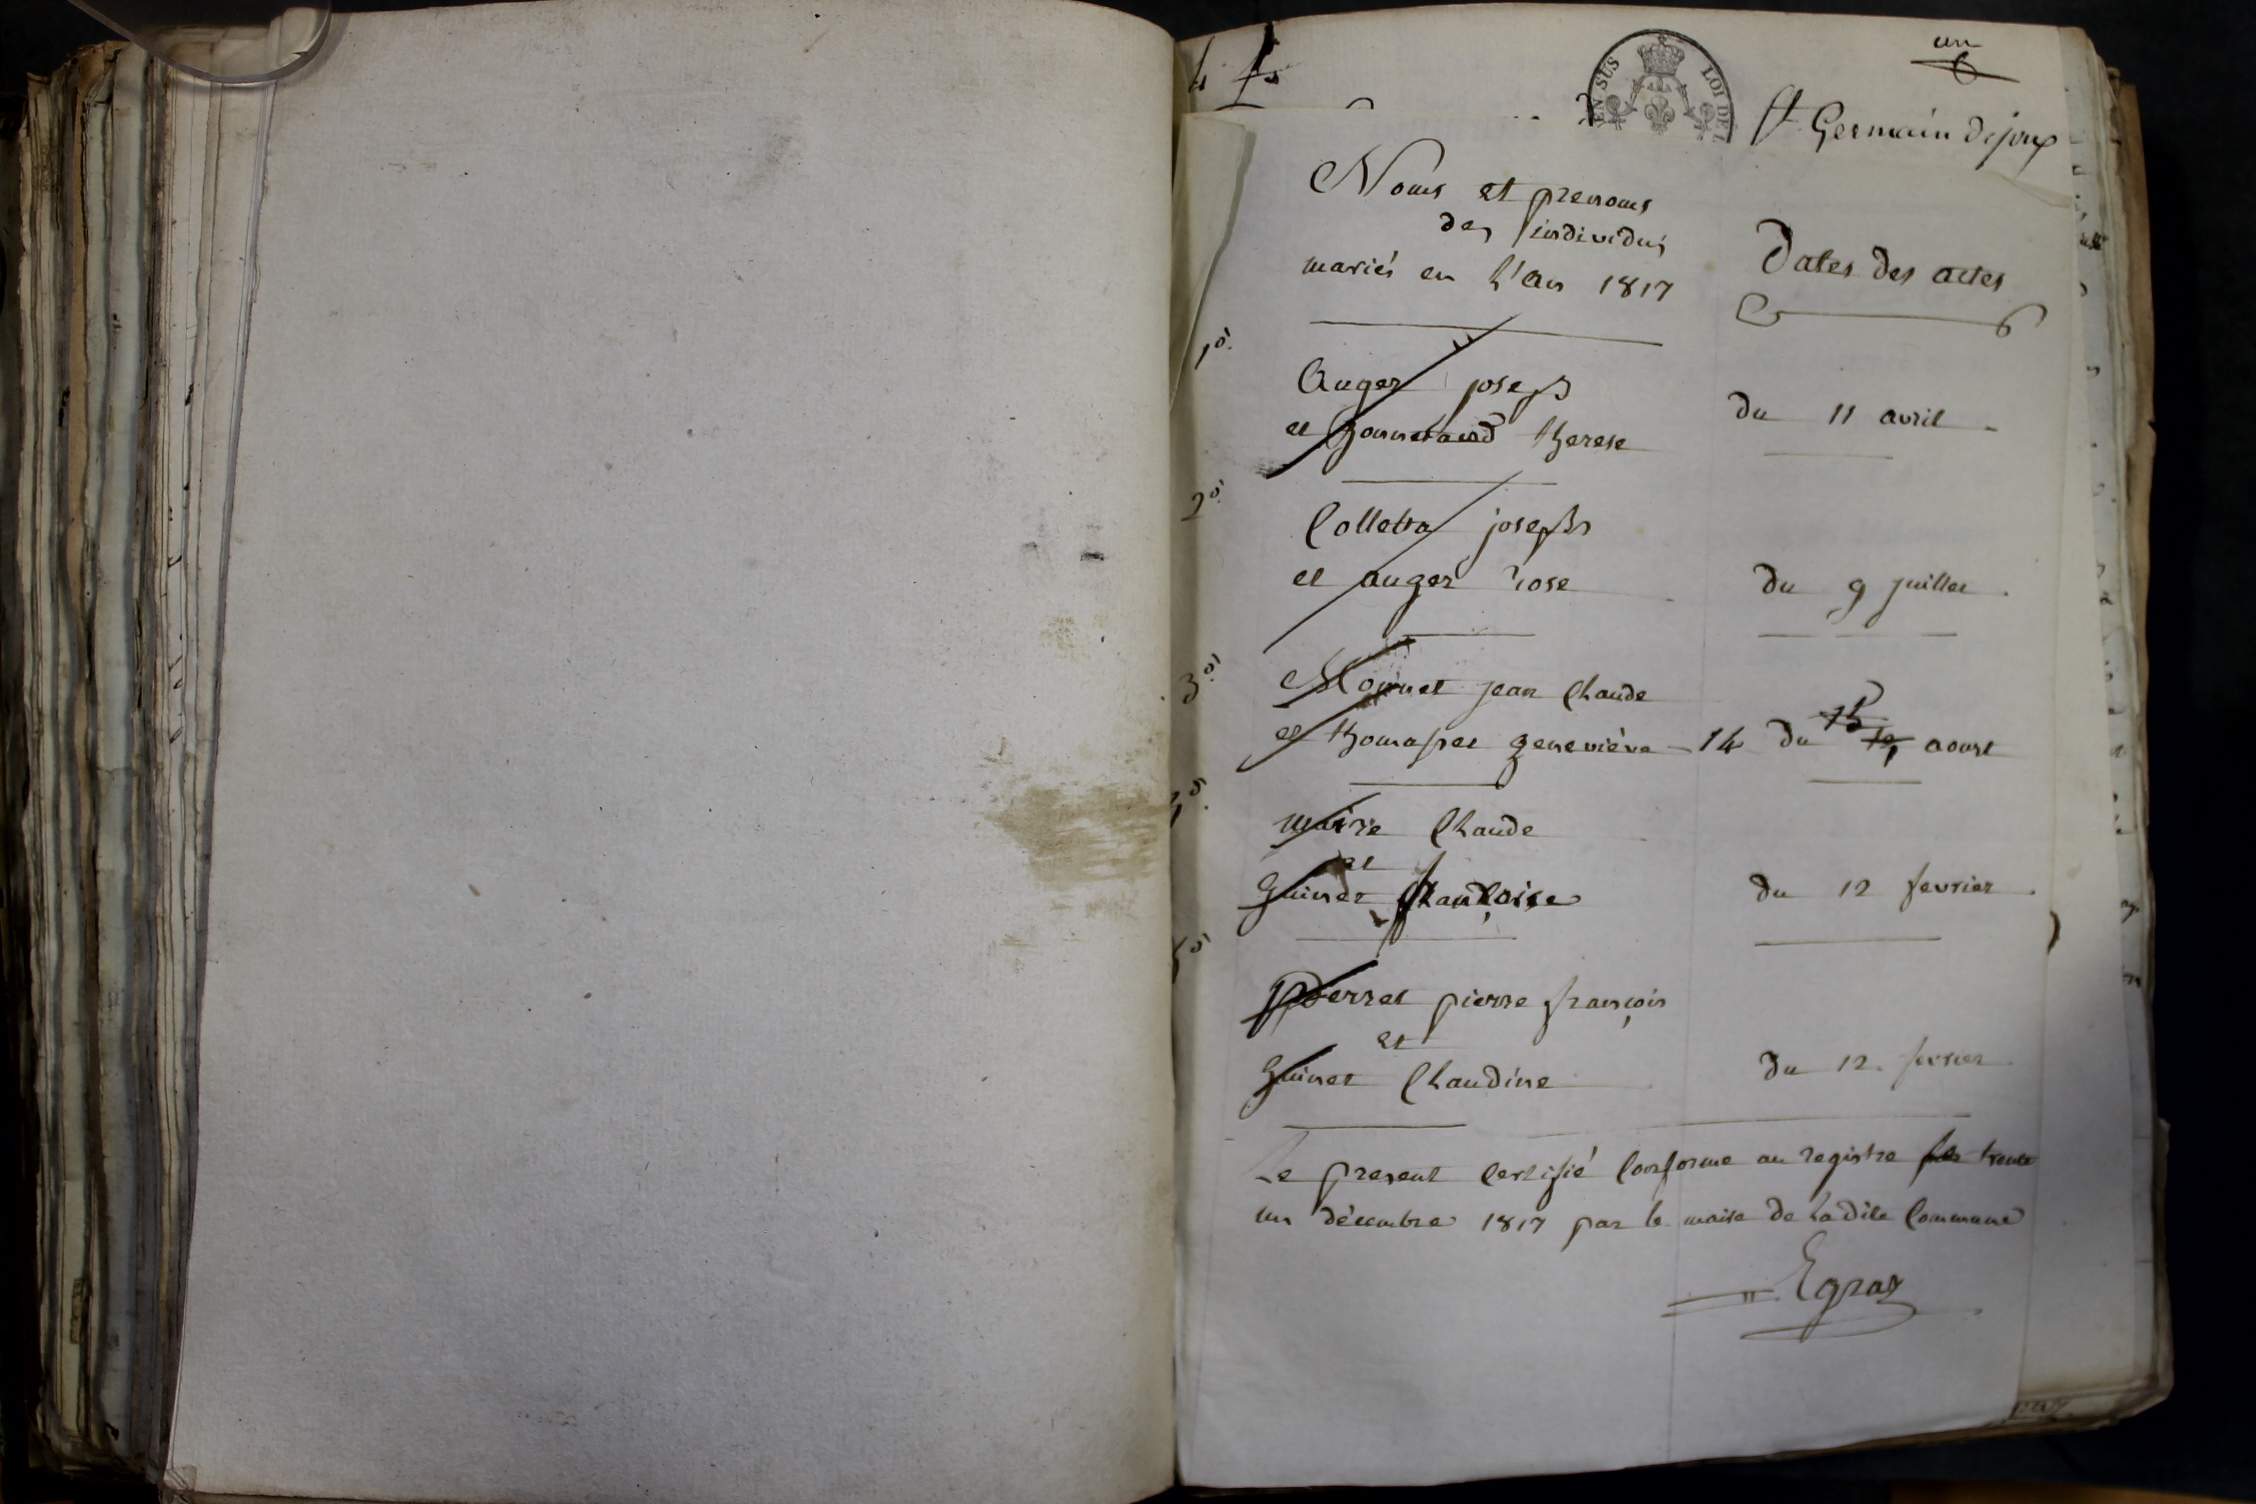 un
6
EN SUS LOI DE
St Germain de joux
Noms et prenoms
des individus
mariés en l'an 1817
Dates des actes
1o.
Auger joseph
et Bonnetaud therese
du 11 avril
2o.
Colletta joseph
et auger rose
du 9 juillet
3o.
Moinet jean Claude
et thomasset geneviève - 14 du 15 aoust
maire Claude
et
Guinet françoise
du 12 fevrier
5o
perret pierre françois
et
Guinet Claudine
du 12 fevrier
Le present certifié conforme au registre trente
un décembre 1817 par le maire de ladite Commune
Egraz